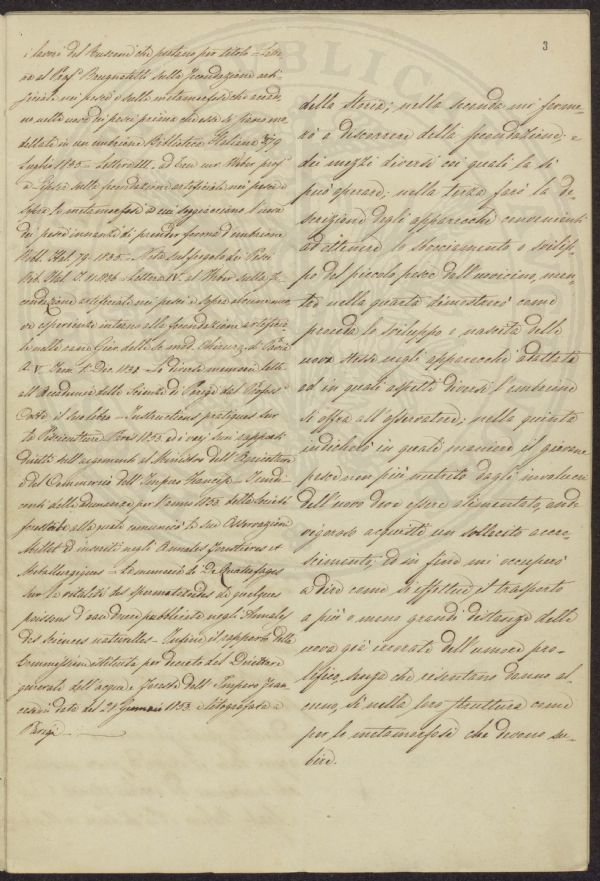 3
i lavori del Rusconi che portano per titolo – Lette-
ra al Prof.e Brugnatelli sulla fecondazione arti-
ficiale nei pesci e sulle metamorfosi che acado-
no nelle uova di pesci prima che esse si siano mo-
dellate in un embrione Biblioteca Italiana 379
Luglio 1835 – Lettera III. ad Ern. Weber prof.
a Lipsia sulla fecondazione artificiale nei pesci e
sopra le metamorfosi a cui soggiacciono l'uova
dei pesci innanzi di prender forma d'embrione
Bibl. Ital. 79. 1835. – Nota sul fegato dei Pesci
Bib. Ital. 1836 – Lettera IV. al Weber sulla fe-
condazione artificiale nei pesci e sopra alcune nuo-
ve esperienze intorno alla fecondazione artificia-
le nelle rane Gior. delle Sc. med. Chirurg. di Pavia
Dic. – Le diverse memorie lette
all'Accademia delle Scienze di Parigi dal Profess.
Coste il suo libro – Instructions pratiques sur
la Pisciculture Paris 1853. ed i varj suoi rapporti
diretti sull'argomento al Ministro dell'Agricoltura
e del Commercio dell'Impero Francese – I rendi-
conti delle adunanze per l'anno 1853 della Società
forestale alla quale comunicò le sue Osservazioni
Millet ed inseriti negli Annales forestieres et
Metallurgiques – Le memorie di De Quatrefages
sur la vitalité des spermatozoides de quelques
poissons d'eau douce pubblicate negli Annales
des Sciences naturelles – Infine il rapporto della
Commissione istituita per decreto del Direttore
generale dell'acque e foreste dell'Impero Fran-
cese in data del 21 Gennaio 1853 e litografato a
Parigi.
della storia; nella seconda mi ferme-
rò a discorrere della fecondazione; e
dei mezzi diversi coi quali la si
può operare; nella terza farò la de-
scrizione degli apparecchi convenienti
ad ottenere lo sbocciamento o svilup-
po del piccolo pesce dall'uovicino, men-
tre nella quarta dimostrerò come
proceda lo sviluppo e nascita delle
uova stesse negli apparecchi adattati
ed in quali aspetti diversi l'embrione
si offra all'osservatore; nella quinta
indicherò in quali maniere il giovane
pesce non più nutrito dagli involucri
dell'uovo deve essere alimentato, onde
vigoroso acquisti un sollecito accre-
scimento; ed in fine mi occuperò
a dire come si effettui il trasporto
a più o meno grandi distanze delle
uova già irrorate dell'umore pro-
lifico, senza che risentano danno al-
cuno, sì nella loro struttura come
per le metamorfosi che devono su-
bire.